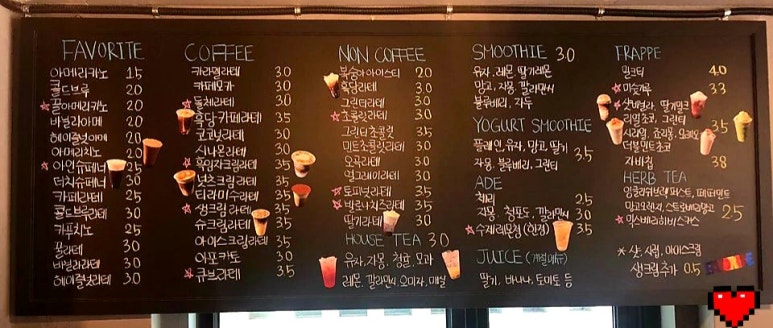 FAVORITE
아메리카노 1.5
콜드브루 2.0
꿀아메리카노 2.0
바닐라아메 2.0
헤이즐넛아메 2.0
아메리치노 2.0
아인슈페너 2.5
더치슈페너 3.0
카페라떼 2.5
콜드브루라떼 3.0
카푸치노 2.5
꿀라떼 3.0
바닐라라떼 3.0
헤이즐넛라떼 3.0
COFFEE
카라멜라떼 3.0
카페모카 3.0
돌체라떼 3.0
흑당카페라떼 3.5
코코넛라떼 3.0
시나몬라떼 3.0
흑임자크림라떼 3.5
넛츠크림라떼 3.5
티라미수라떼 3.5
생크림라떼 3.0
슈크림라떼 3.5
아이스크림라떼 3.5
아포카토 3.0
큐브라떼 3.5
NON COFFEE
복숭아아이스티 2.0
흑당라떼 3.0
그린티라떼 3.0
초콜릿라떼 3.0
그린티초콜릿 3.5
민트초콜릿라떼 3.0
오곡라떼 3.0
얼그레이라떼 3.0
토피넛라떼 3.5
3.5
딸기라떼 3.0
HOUSE TEA 3.0
유자, 자몽, 청귤, 모과
레몬, 깔라만씨, 오미자, 매실
SMOOTHIE 3.0
유자, 레몬, 딸기레몬
망고, 자몽, 깔라만씨
블루베리, 자두
YOGURT SMOOTHIE
플레인, 유자, 망고, 딸기
자몽, 블루베리, 그린티 3.5
ADE
체리 2.5
자몽, 청포도, 깔라만씨 3.0
수제레몬청 (한정) 3.5
JUICE
딸기, 바나나, 토마토 등
FRAPPE
밀크티 4.0
미숫가루 3.3
샷바닐라, 딸기밀크
리얼초코, 그린티 3.5
시리얼, 쿠키퐁, 오레오
더블민트초코
자바칩 3.8
HERB TEA
페퍼민트
2.5
히비스커스
* 샷, 시럽, 아이스크림
생크림추가 0.5